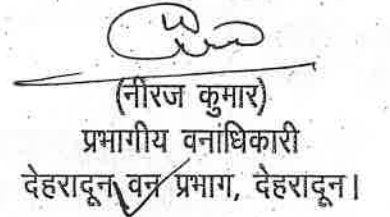 (नीरज कुमार)
प्रभागीय वनाधिकारी
देहरादून वन प्रभाग, देहरादून।